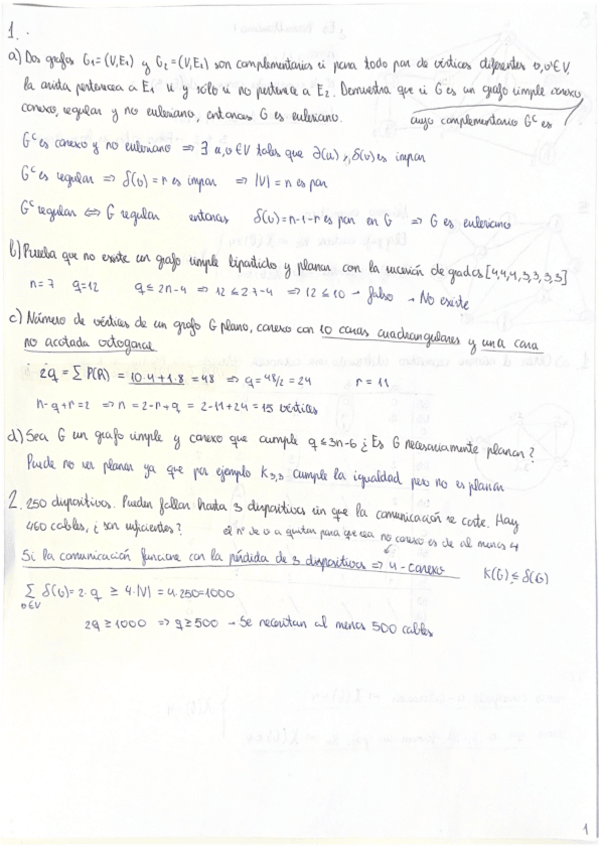 1.
a) Dos grafos G₁=(V,E₁) y G₂=(V,E₂) son complementarios si para todo par de vértices diferentes u,v∈V,
la arista pertenece a E₁ si y sólo si no pertenece a E₂. Demuestra que si G es un grafo simple conexo,
conexo, regular y no euleriano, entonces G es euleriano. cuyo complementario Gᶜ es
Gᶜ es conexo y no euleriano ⇒ ∃ u,v∈V tales que ∂(u), δ(v) es impar
Gᶜ es regular ⇒ δ(v) = r es impar ⇒ |V| = n es par
Gᶜ regular ⇔ G regular entonces δ(v)=n-1-r es par en G ⇒ G es euleriano
b) Prueba que no existe un grafo simple bipartido y planar con la sucesión de grados [4,4,4,3,3,3,3]
n=7 q=12 q≤2n-4 ⇒ 12≤2·7-4 ⇒ 12≤10 → falso → No existe
c) Número de vértices de un grafo G plano, conexo con 10 caras cuadrangulares y una cara
no acotada octogonal
2q = Σ P(R) = 10·4+1·8 = 48 ⇒ q=48/2=24 r=11
n-q+r=2 ⇒ n=2-r+q = 2-11+24=15 vértices
d) Sea G un grafo simple y conexo que cumple q≤3n-6 ¿Es G necesariamente planar?
Puede no ser planar ya que por ejemplo K₃,₃ cumple la igualdad pero no es planar
2. 250 dispositivos. Pueden fallar hasta 3 dispositivos sin que la comunicación se corte. Hay
460 cables, ¿son suficientes? el nº de v a quitar para que sea no conexo es de al menos 4
Si la comunicación funciona con la pérdida de 3 dispositivos ⇒ 4-conexo K(G)≤δ(G)
Σ δ(v)=2·q ≥ 4·|V|=4·250=1000
v∈V
2q≥1000 ⇒ q≥500 → Se necesitan al menos 500 cables
1